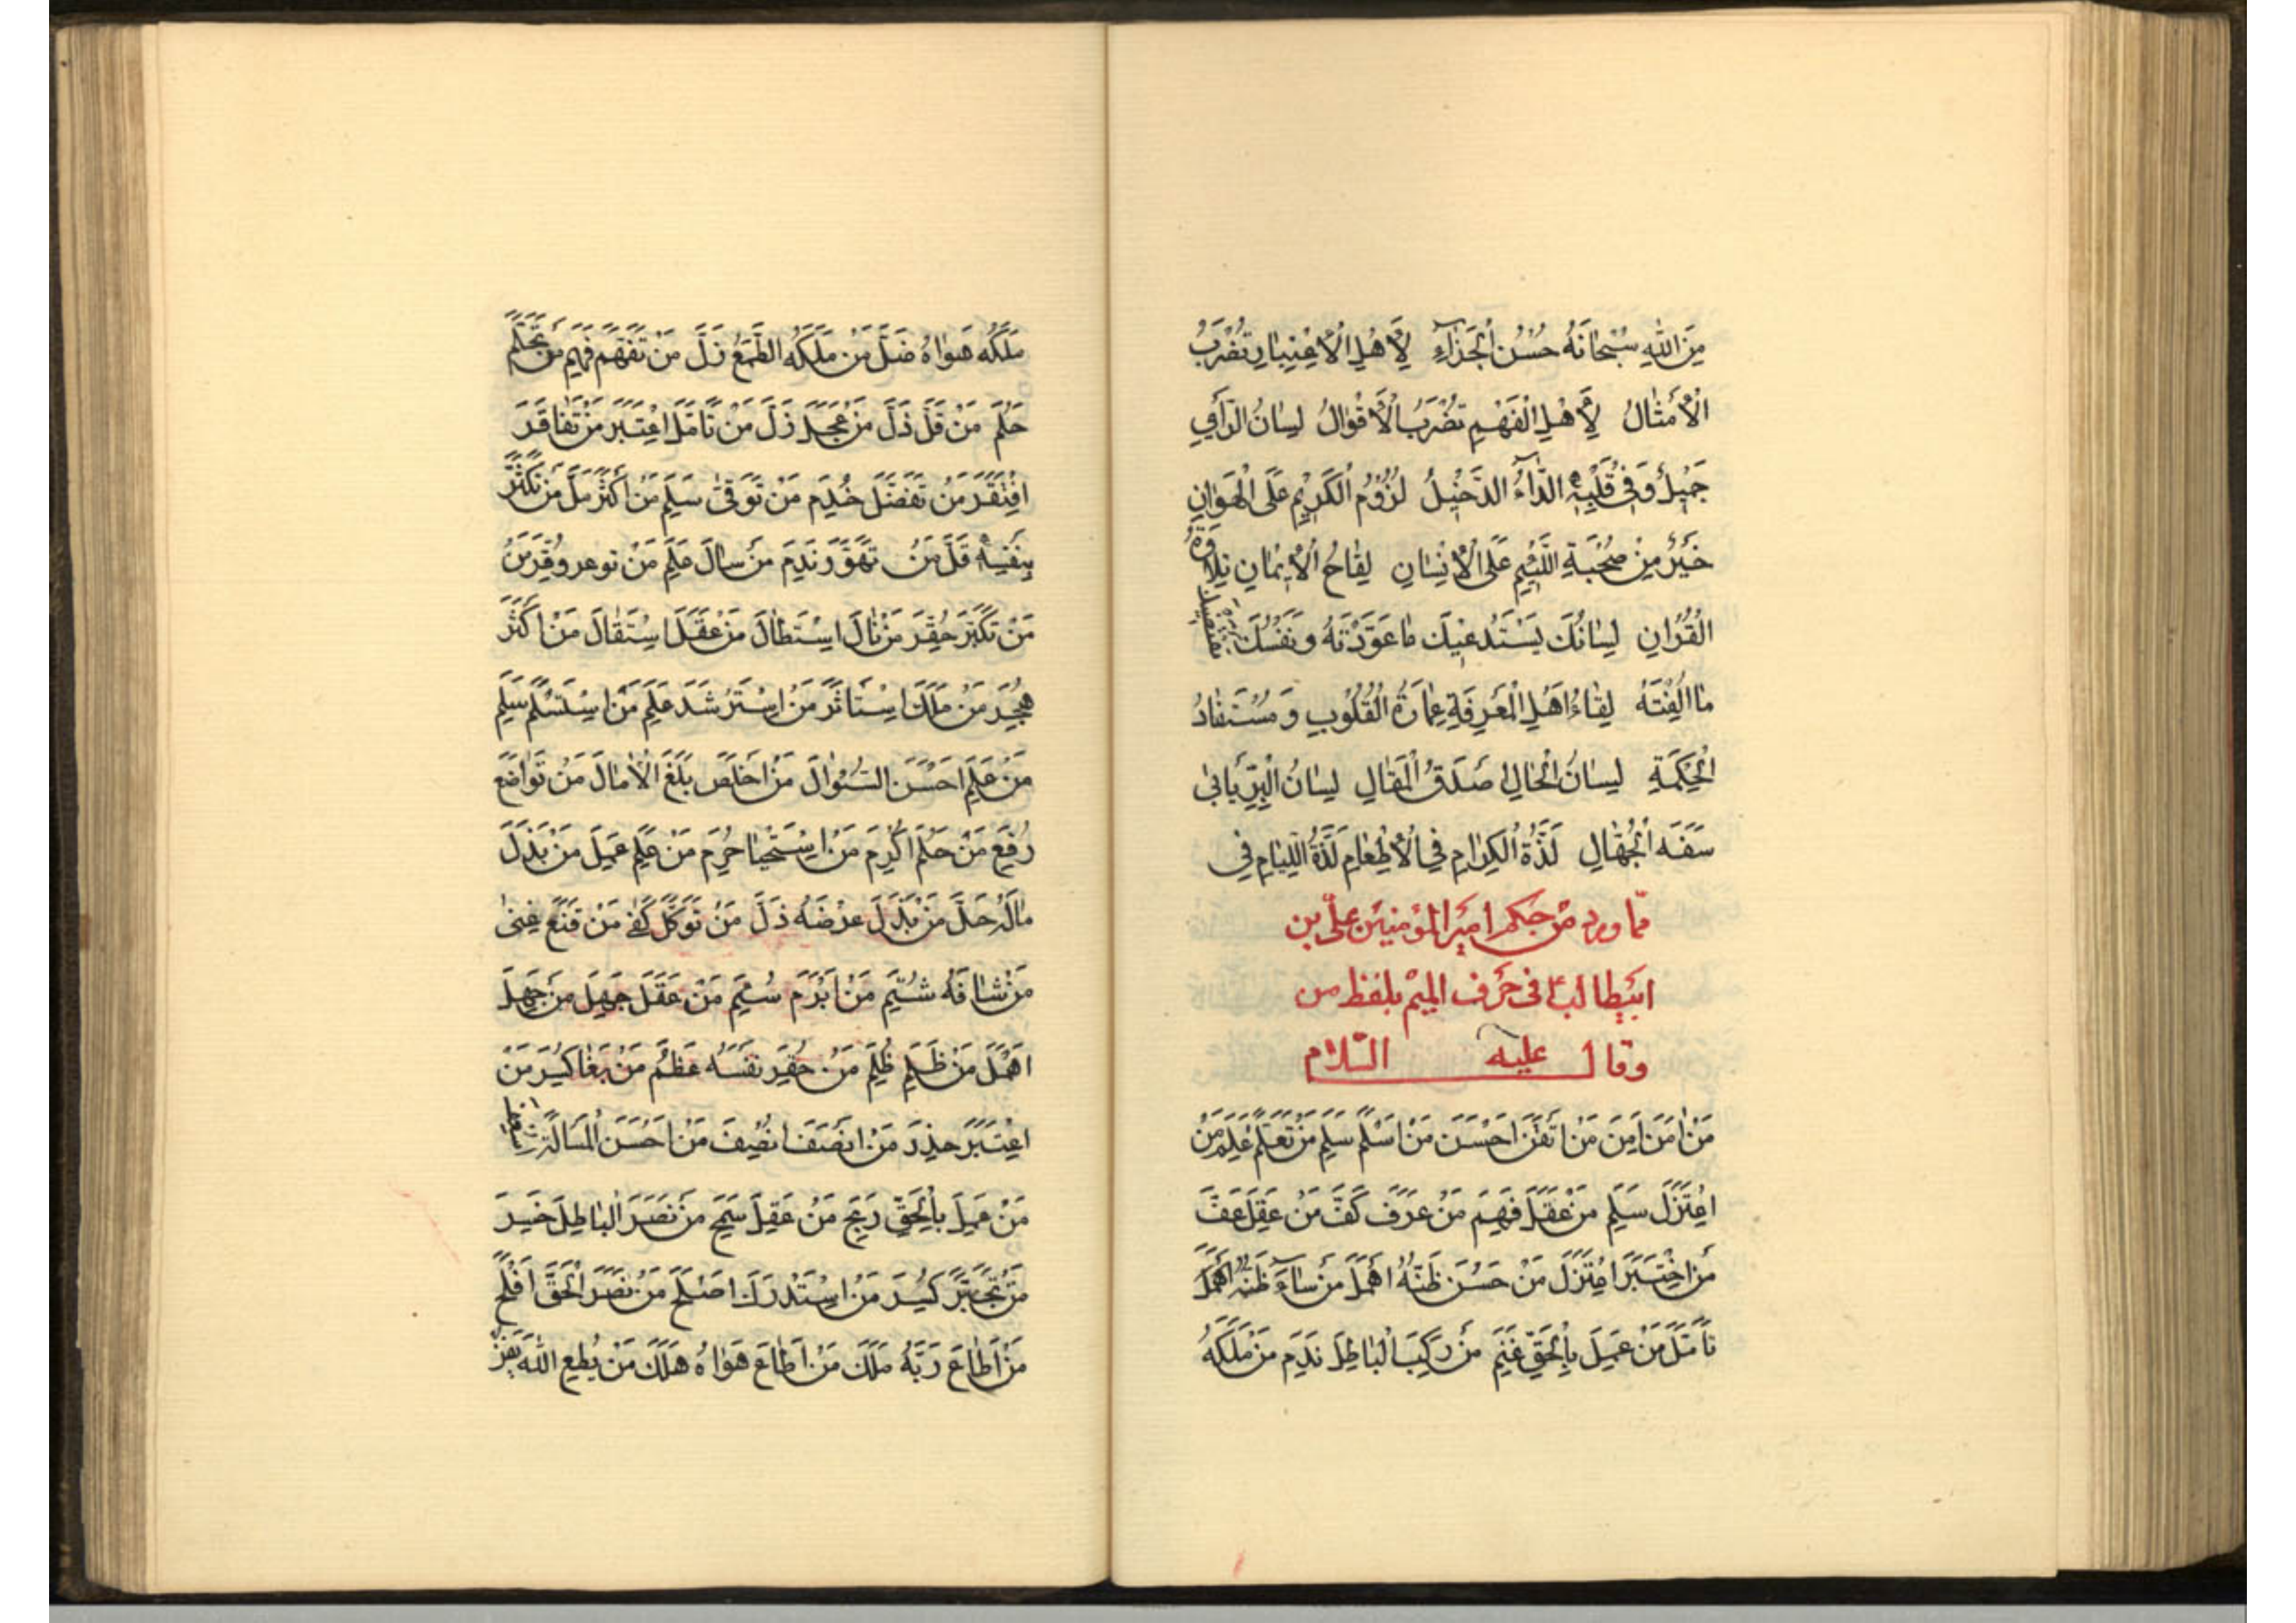 مِنَ اللهِ سُبْحَانَهُ حُسْنُ الْجَزَاءِ لِأَهْلِ الْاِعْتِبَارِ تُضْرَبُ
الْأَمْثَالُ لِأَهْلِ الْفَهْمِ تُضْرَبُ الْأَقْوَالُ لِسَانُ الْمُرَائِي
جَمِيْلٌ وَفِي قَلْبِهِ الدَّاءُ الدَّخِيْلُ لُزُوْمُ الْكَرِيْمِ عَلَى الْهَوَانِ
خَيْرٌ مِنْ صُحْبَةِ اللَّئِيْمِ عَلَى الْاِنْسَانِ لِقَاحُ الْاِيْمَانِ تِلَاوَةُ
الْقُرْاٰنِ لِسَانُكَ يَسْتَدْعِيْكَ مَا عَوَّدْتَهُ وَنَفْسُكَ تَقْتَضِيْكَ
مَا اَلِفْتَهُ لِقَاءُ اَهْلِ الْمَعْرِفَةِ عِمَارَةُ الْقُلُوْبِ وَ مُسْتَفَادُ
الْحِكْمَةِ لِسَانُ الْحَالِ اَصْدَقُ الْمَقَالِ لِسَانُ الْبِرِّ يَاْبٰى
سَفَهَ الْجُهَّالِ لَذَّةُ الْكِرَامِ فِي الْاِطْعَامِ لَذَّةُ اللِّئَامِ فِي
مما ورد من حكم امير المؤمنين على بن
ابيطالبؑ فى حرف الميم بلفظ من
وقال عليه السلام
مَنْ اٰمَنَ اَمِنَ مَنْ اَتْقَنَ اَحْسَنَ مَنْ اَسْلَمَ سَلِمَ مَنْ تَعَلَّمَ عَلِمَ مَنْ
اعْتَزَلَ سَلِمَ مَنْ عَقَلَ فَهِمَ مَنْ عَرَفَ كَفَّ مَنْ عَقَلَ عَفَّ
مَنْ اخْتَبَرَ اعْتَزَلَ مَنْ حَسُنَ ظَنُّهُ اَهْمَلَ مَنْ سَاءَ ظَنُّهُ
تَاَمَّلَ مَنْ عَمِلَ بِالْحَقِّ غَنِمَ مَنْ رَكِبَ الْبَاطِلَ نَدِمَ مَنْ مَلَكَهُ
مَلَكَهُ هَوَاهُ ضَلَّ مَنْ مَلَكَهُ الطَّمَعُ ذَلَّ مَنْ تَفَهَّمَ فَهِمَ مَنْ تَحَلَّمَ
حَلُمَ مَنْ قَلَّ ذَلَّ مَنْ عَجِلَ زَلَّ مَنْ تَاَمَّلَ اعْتَبَرَ مَنْ تَفَاقَرَ
افْتَقَرَ مَنْ تَفَضَّلَ خُدِمَ مَنْ تَوَقّٰى سَلِمَ مَنْ اَكْثَرَ مَلَّ مَنْ تَكَثَّرَ
بِنَفْسِهِ قَلَّ مَنْ تَهَوَّرَ نَدِمَ مَنْ سَاَلَ عَلِمَ مَنْ وُقِّرَ مَنْ
مَنْ تَكَبَّرَ حُقِّرَ مَنْ نَالَ اسْتَطَالَ مَنْ عَقَلَ اسْتَقَالَ مَنْ اَكْثَرَ
هُجِرَ مَنْ مَلَكَ اسْتَاْثَرَ مَنْ اسْتَرْشَدَ عَلِمَ مَنْ اسْتَسْلَمَ سَلِمَ
مَنْ عَلِمَ اَحْسَنَ السُّؤَالَ مَنْ اَخْلَصَ بَلَغَ الْاٰمَالَ مَنْ تَوَاضَعَ
رُفِعَ مَنْ حَلُمَ اُكْرِمَ مَنْ اسْتَحْيَا حُرِمَ مَنْ عَلِمَ عَمِلَ مَنْ بَذَلَ
مَالَهُ جَلَّ مَنْ بَذَلَ عِرْضَهُ ذَلَّ مَنْ تَوَكَّلَ كُفِيَ مَنْ قَنَعَ غَنِىَ
مَنْ شَافَهَ شُتِمَ مَنْ اَبْرَمَ سُئِمَ مَنْ عَقَلَ جَهِلَ مَنْ جَهِلَ
اَهْمَلَ مَنْ ظَلَمَ ظُلِمَ مَنْ حَقَّرَ نَفْسَهُ عَظُمَ مَنْ بَغَا كُسِرَ مَنْ
اعْتَبَرَ حَذِرَ مَنْ اَنْصَفَ اُنْصِفَ مَنْ اَحْسَنَ الْمَسْاَلَةَ
مَنْ عَمِلَ بِالْحَقِّ رَبِحَ مَنْ عَقَلَ سَمَحَ مَنْ نَصَرَ الْبَاطِلَ خَسِرَ
مَنْ تَجَبَّرَ كُسِرَ مَنْ اسْتَدْرَكَ اَصْلَحَ مَنْ نَصَرَ الْحَقَّ اَفْلَحَ
مَنْ اَطَاعَ رَبَّهُ مَلَكَ مَنْ اَطَاعَ هَوَاهُ هَلَكَ مَنْ يُطِعِ اللهَ يَفُزْ